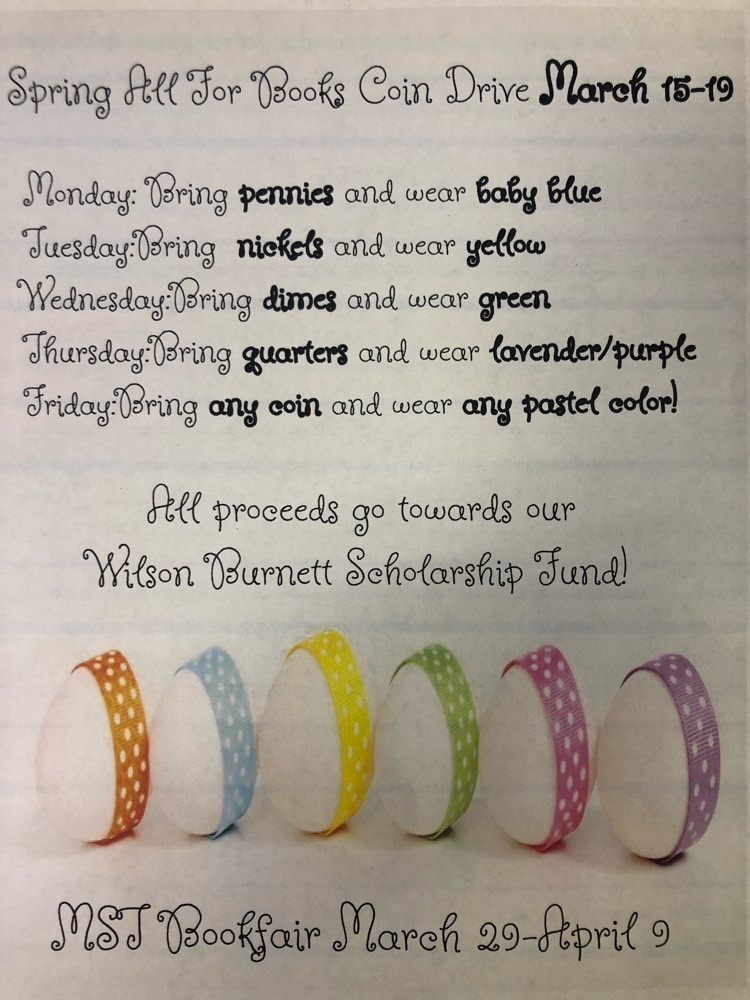 Spring All For Books Coin Drive March 15-19
Monday: Bring pennies and wear baby blue
Tuesday:Bring nickels and wear yellow
Wednesday:Bring dimes and wear green
Thursday:Bring quarters and wear lavender/purple
Friday:Bring any coin and wear any pastel color!
All proceeds go towards our
Wilson Burnett Scholarship Fund!
MST Bookfair March 29-April 9